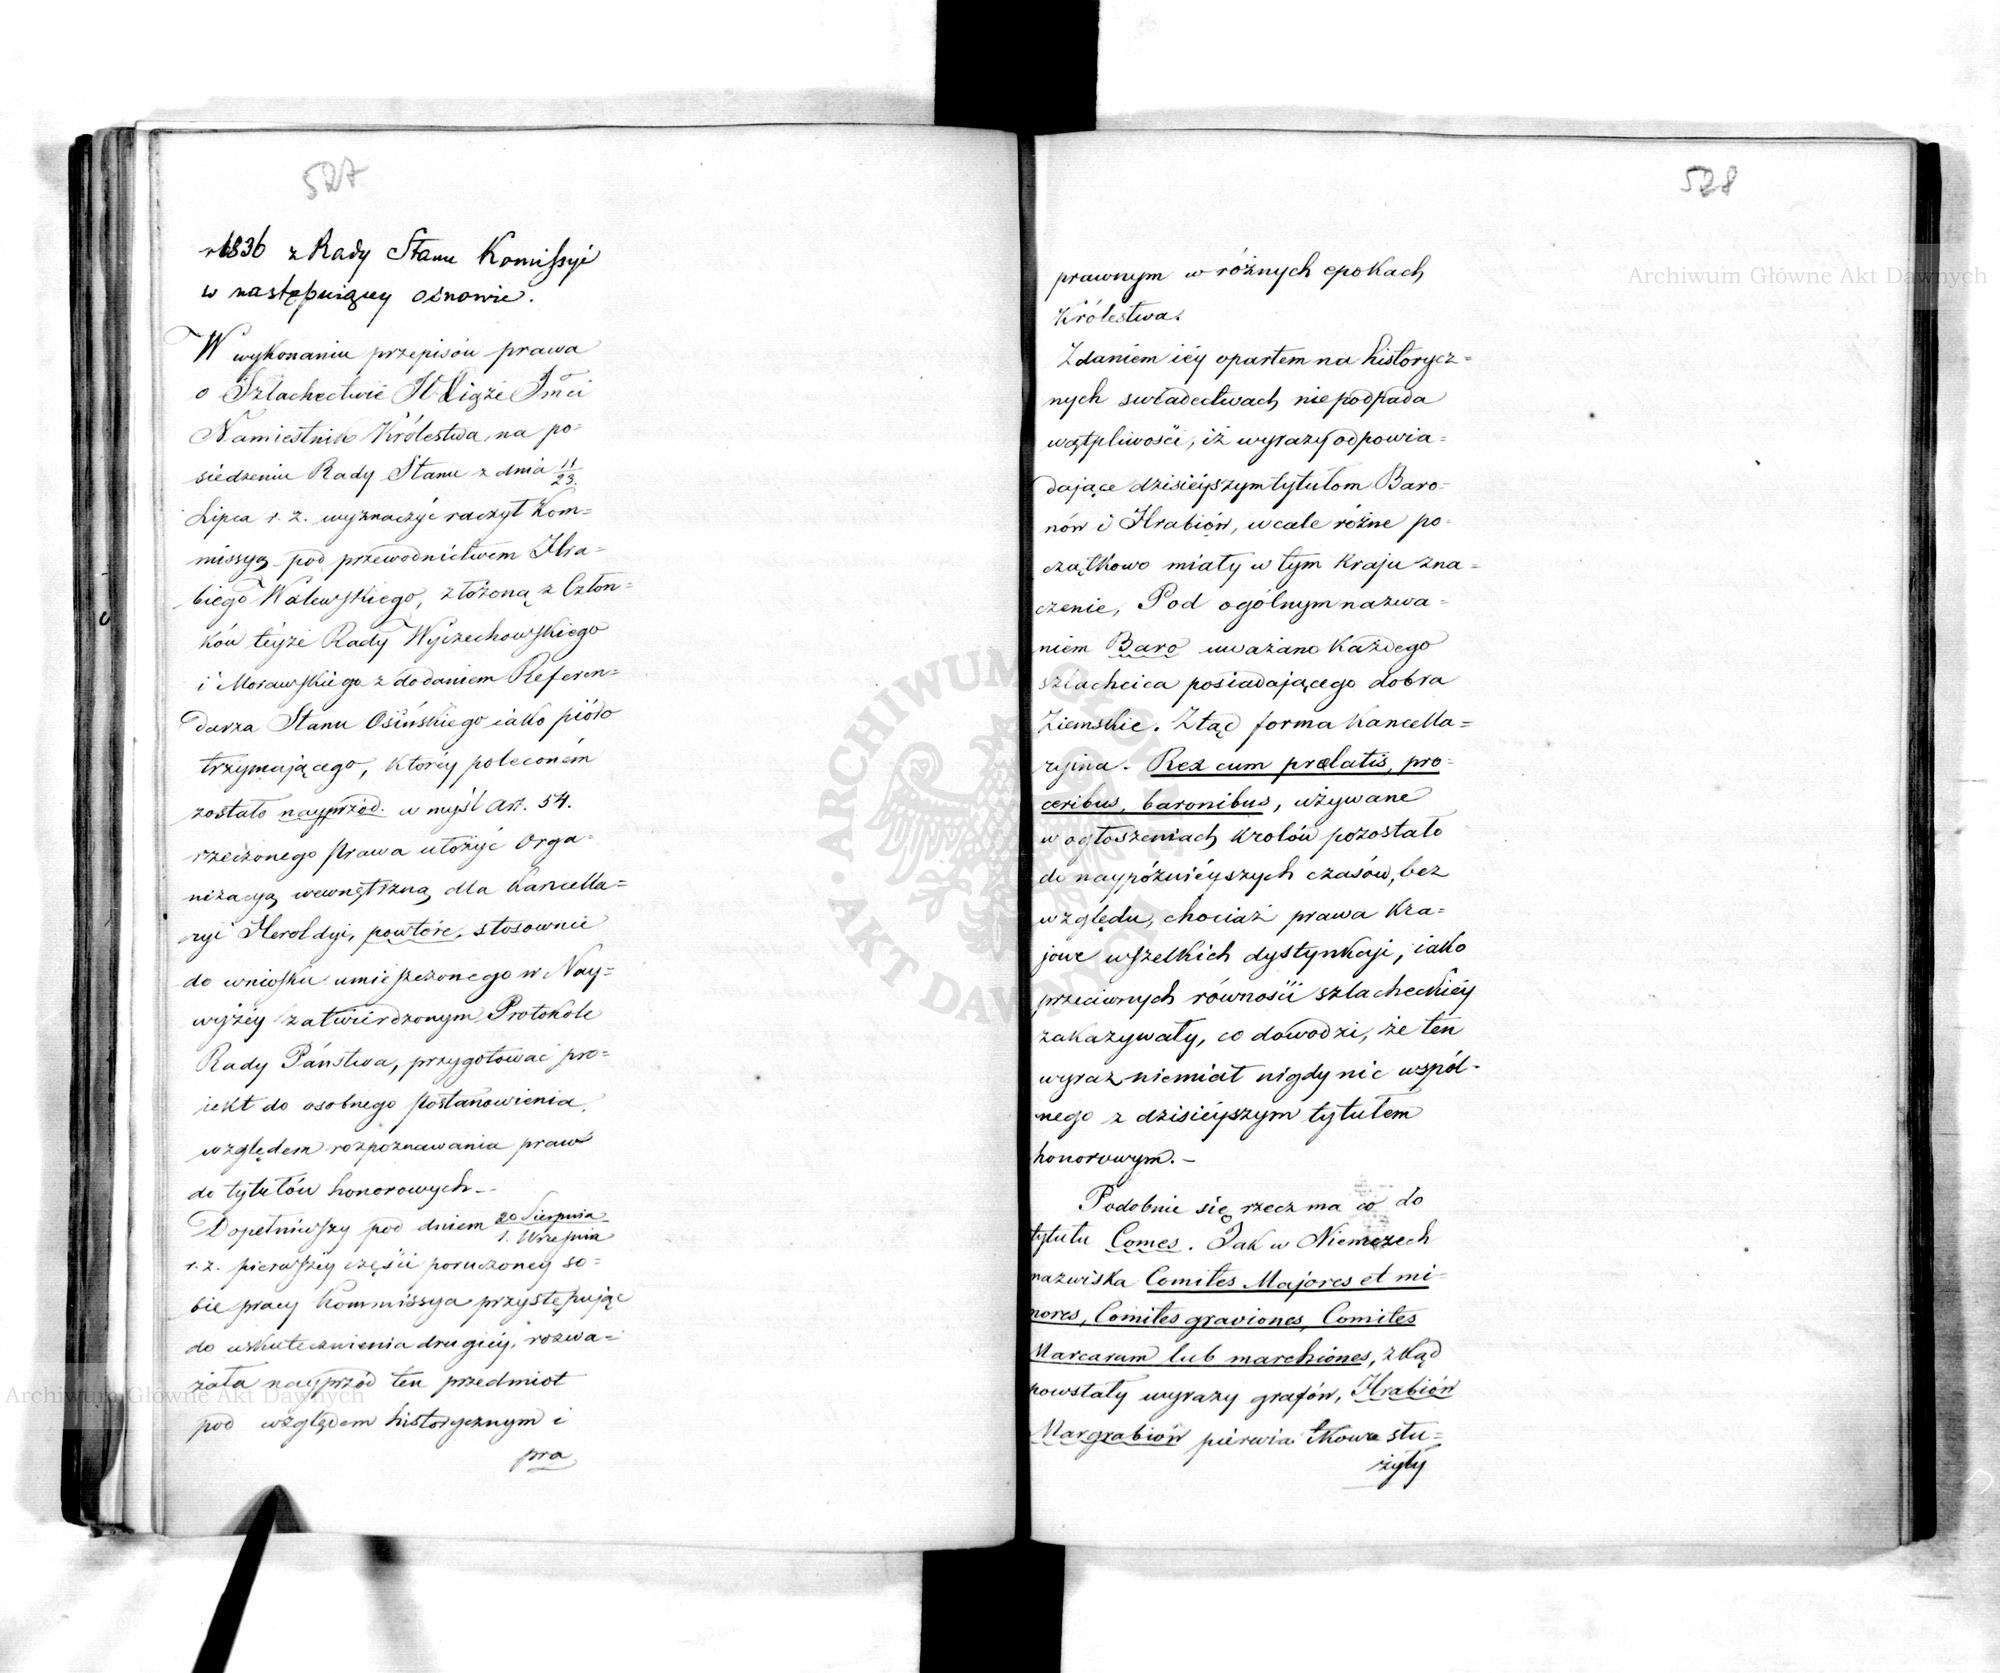 527
r 1836 z Rady Stanu Komissyi
w następuiącey osnowie.
W wykonaniu przepisów prawa
o Szlachectwie JO Xiąże Jmći
Namiestnik Królestwa, na po=
siedzeniu Rady Stanu z dnia 11/23.
Lipca r. z. wyznaczyć raczył Kom=
missyą pod przewodnictwem Hra=
biego Walewskiego, złożoną z Człon=
ków teyże Rady Wyczechowskiego
i Morawskiego z dodaniem Referen=
darza Stanu Osińskiego iako pióro
trzymającego, którey poleconém
zostało nayprzód. w myśl Art. 54.
rzeczonego prawa ułożyć Orga=
nizacyą wewnętrzną dla Kancella=
ryi Heroldyi, powtóre, stosownie
do wniosku umieszczonego w Nay=
wyżéy zatwierdzonym Protokóle
Rady Państwa, przygotować pro=
iekt do osobnego postanowienia,
względem rozpoznawania praw
do tytułów honorowych.—
Dopełniwszy pod dniem 20 Sierpnia/1. Września
r. z. pierwszéy części poruczoney so=
bie pracy Kommissya przystępując
do uskutecznienia drugiéy, rozwa=
żała nayprzód ten przedmiot
pod względem historycznym i
pra
528
prawnym w różnych epokach
Królestwa.
Zdaniem iéy opartem na historycz=
nych świadectwach niepodpada
wątpliwości, iż wyrazy odpowia=
dające dzisiéyszym tytułom Baro=
nów i Hrabiów, wcale różne po=
czątkowo miały w tym Kraju zna=
czenie, Pod ogólnym nazwa=
niem Baro uważano każdego
szlachcica posiadającego dobra
Ziemskie. Ztąd forma Kancella=
ryjna. Rex cum prælatis, pro=
ceribus, baronibus, używane
w ogłoszeniach Królów pozostało
do naypóźniéyszych czasów, bez
względu, chociaż prawa Kra=
jowe wszelkich dystynkcji, iako
przeciwnych równości szlacheckiéy
zakazywały, co dowodzi, że ten
wyraz niemiał nigdy nic wspól=
nego z dzisiéyszym tytułem
honorowym.—
Podobnie się rzecz ma co do
tytułu Comes. Jak w Niemczech
nazwiska Comites Majores et mi=
nores, Comites graviones, Comites
Marcarum lub marchiones, zkąd
powstały wyrazy grafów, Hrabiów
Margrabiów pierwiastkowo słu=
żyły
Archiwum Główne Akt Dawnych
Archiwum Główne Akt Dawnych
ARCHIWUM GŁÓWNE AKT DAWNYCH